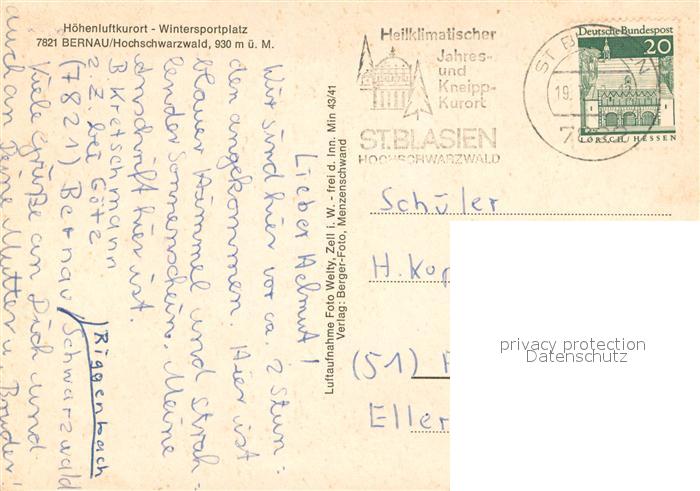 Höhenluftkurort - Wintersportplatz
7821 BERNAU/Hochschwarzwald, 930 m ü. M.
Lieber Helmut!
Wir sind hier vor ca. 2 Stun:
den angekommen. Hier ist
blauer Himmel und strah-
lender Sonnenschein. Meine
Anschrift hier ist:
B. Kretschmann,
z. Z. bei Götz
(7821) Bernau/Schwarzwald
Riggenbach
Viele Grüße an Dich und
auch an Deine Mutter u. Bruder!
Luftaufnahme Foto Welty, Zell i. W. - frei d. Inn. Min 43/41
Verlag: Berger-Foto, Menzenschwand
Heilklimatischer
Jahres-
und
Kneipp-
Kurort
ST.BLASIEN
HOCHSCHWARZWALD
ST
19.
Deutsche Bundespost
20
LORSCH/HESSEN
Schüler
H. Kop
(51)
Eller
privacy protection
Datenschutz